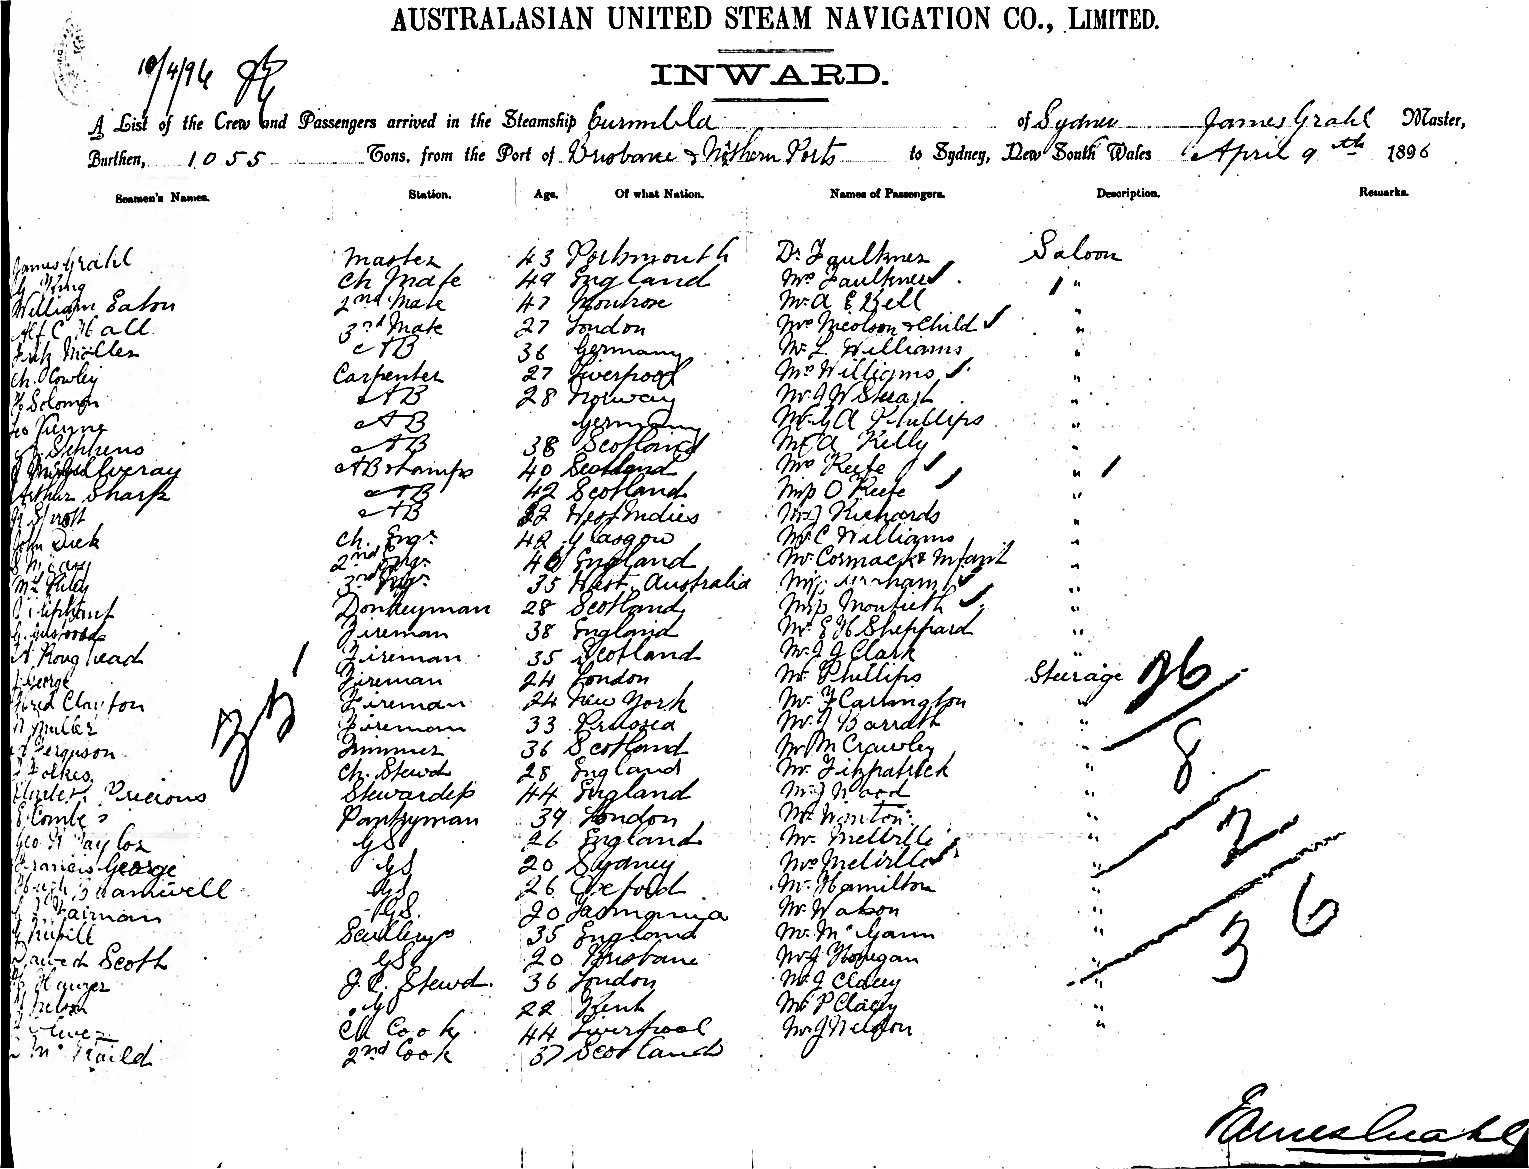 AUSTRALASIAN UNITED STEAM NAVIGATION CO., LIMITED.
10/4/96
INWARD.
A List of the Crew and Passengers arrived in the Steamship Gurumbla of Sydney James Grahl Master,
Burthen, 1055 Tons, from the Port of Brisbane & Nthern Ports to Sydney, New South Wales April 9th 1896
Seamen's Names. Station. Age. Of what Nation. Names of Passengers. Description. Remarks.
James Grahl Master 43 Portsmouth Dr Faulkner Saloon
King Ch Mate 49 England Mrs Faulkner "
William Eaton 2nd Mate 47 Montrose Mr A E Bell "
Alf C Hall 3rd Mate 27 London Mrs Nicolson & Child "
Möller AB 36 Germany Mr L Williams "
Ch. Cowley Carpenter 27 Liverpool Mrs Williams "
Solomon AB 28 Norway Mr J W Stuart "
AB Germany Mr G A Phillips "
J Stephens AB 38 Scotland Mr A Kelly "
AB & Lamps 40 Scotland Mrs Keefe "
Arthur Sharp AB 42 Scotland Miss O Keefe "
AB 22 West Indies Mr J Richards "
John Dick Ch. Engr 42 Glasgow Mr C Williams "
2nd Engr 40 England Mr Cormack & Infant "
Riley 3rd Engr 35 West. Australia Miss "
Donkeyman 28 Scotland Miss Monteith "
Fireman 38 England Mr E H Sheppard "
A Roughead Fireman 35 Scotland Mr J J Clark "
George Fireman 24 London Mr Phillips Steerage 26
Fred Clayton Fireman 24 New York Mr F Carrington "
Muller Fireman 33 Prussia Mr J Barratt "
Ferguson Trimmer 36 Scotland Mr M Crawley " 8
Folkes Ch. Stewd 28 England Mr Fitzpatrick "
Precious Stewardess 44 England Mr J Wood "
E Combes Pantryman 39 London Mr Winton "
Geo H Taylor GS 26 England Mr Melville " 2
Francis George GS 20 Sydney Mrs Melville "
Hugh Bramwell GS 26 Oxford Mr Hamilton "
Fairman GS. 20 Tasmania Mr Watson "
35 England Mr McGann " 36
David Scott GS 20 Brisbane Mr J Horrigan "
Stewd. 36 London Mr J Clacey "
Nelson 22 Kent Mr P Clacey "
Oliver Ch Cook 44 Liverpool Mr J Nelson "
2nd Cook 37 Scotland
35
James Grahl